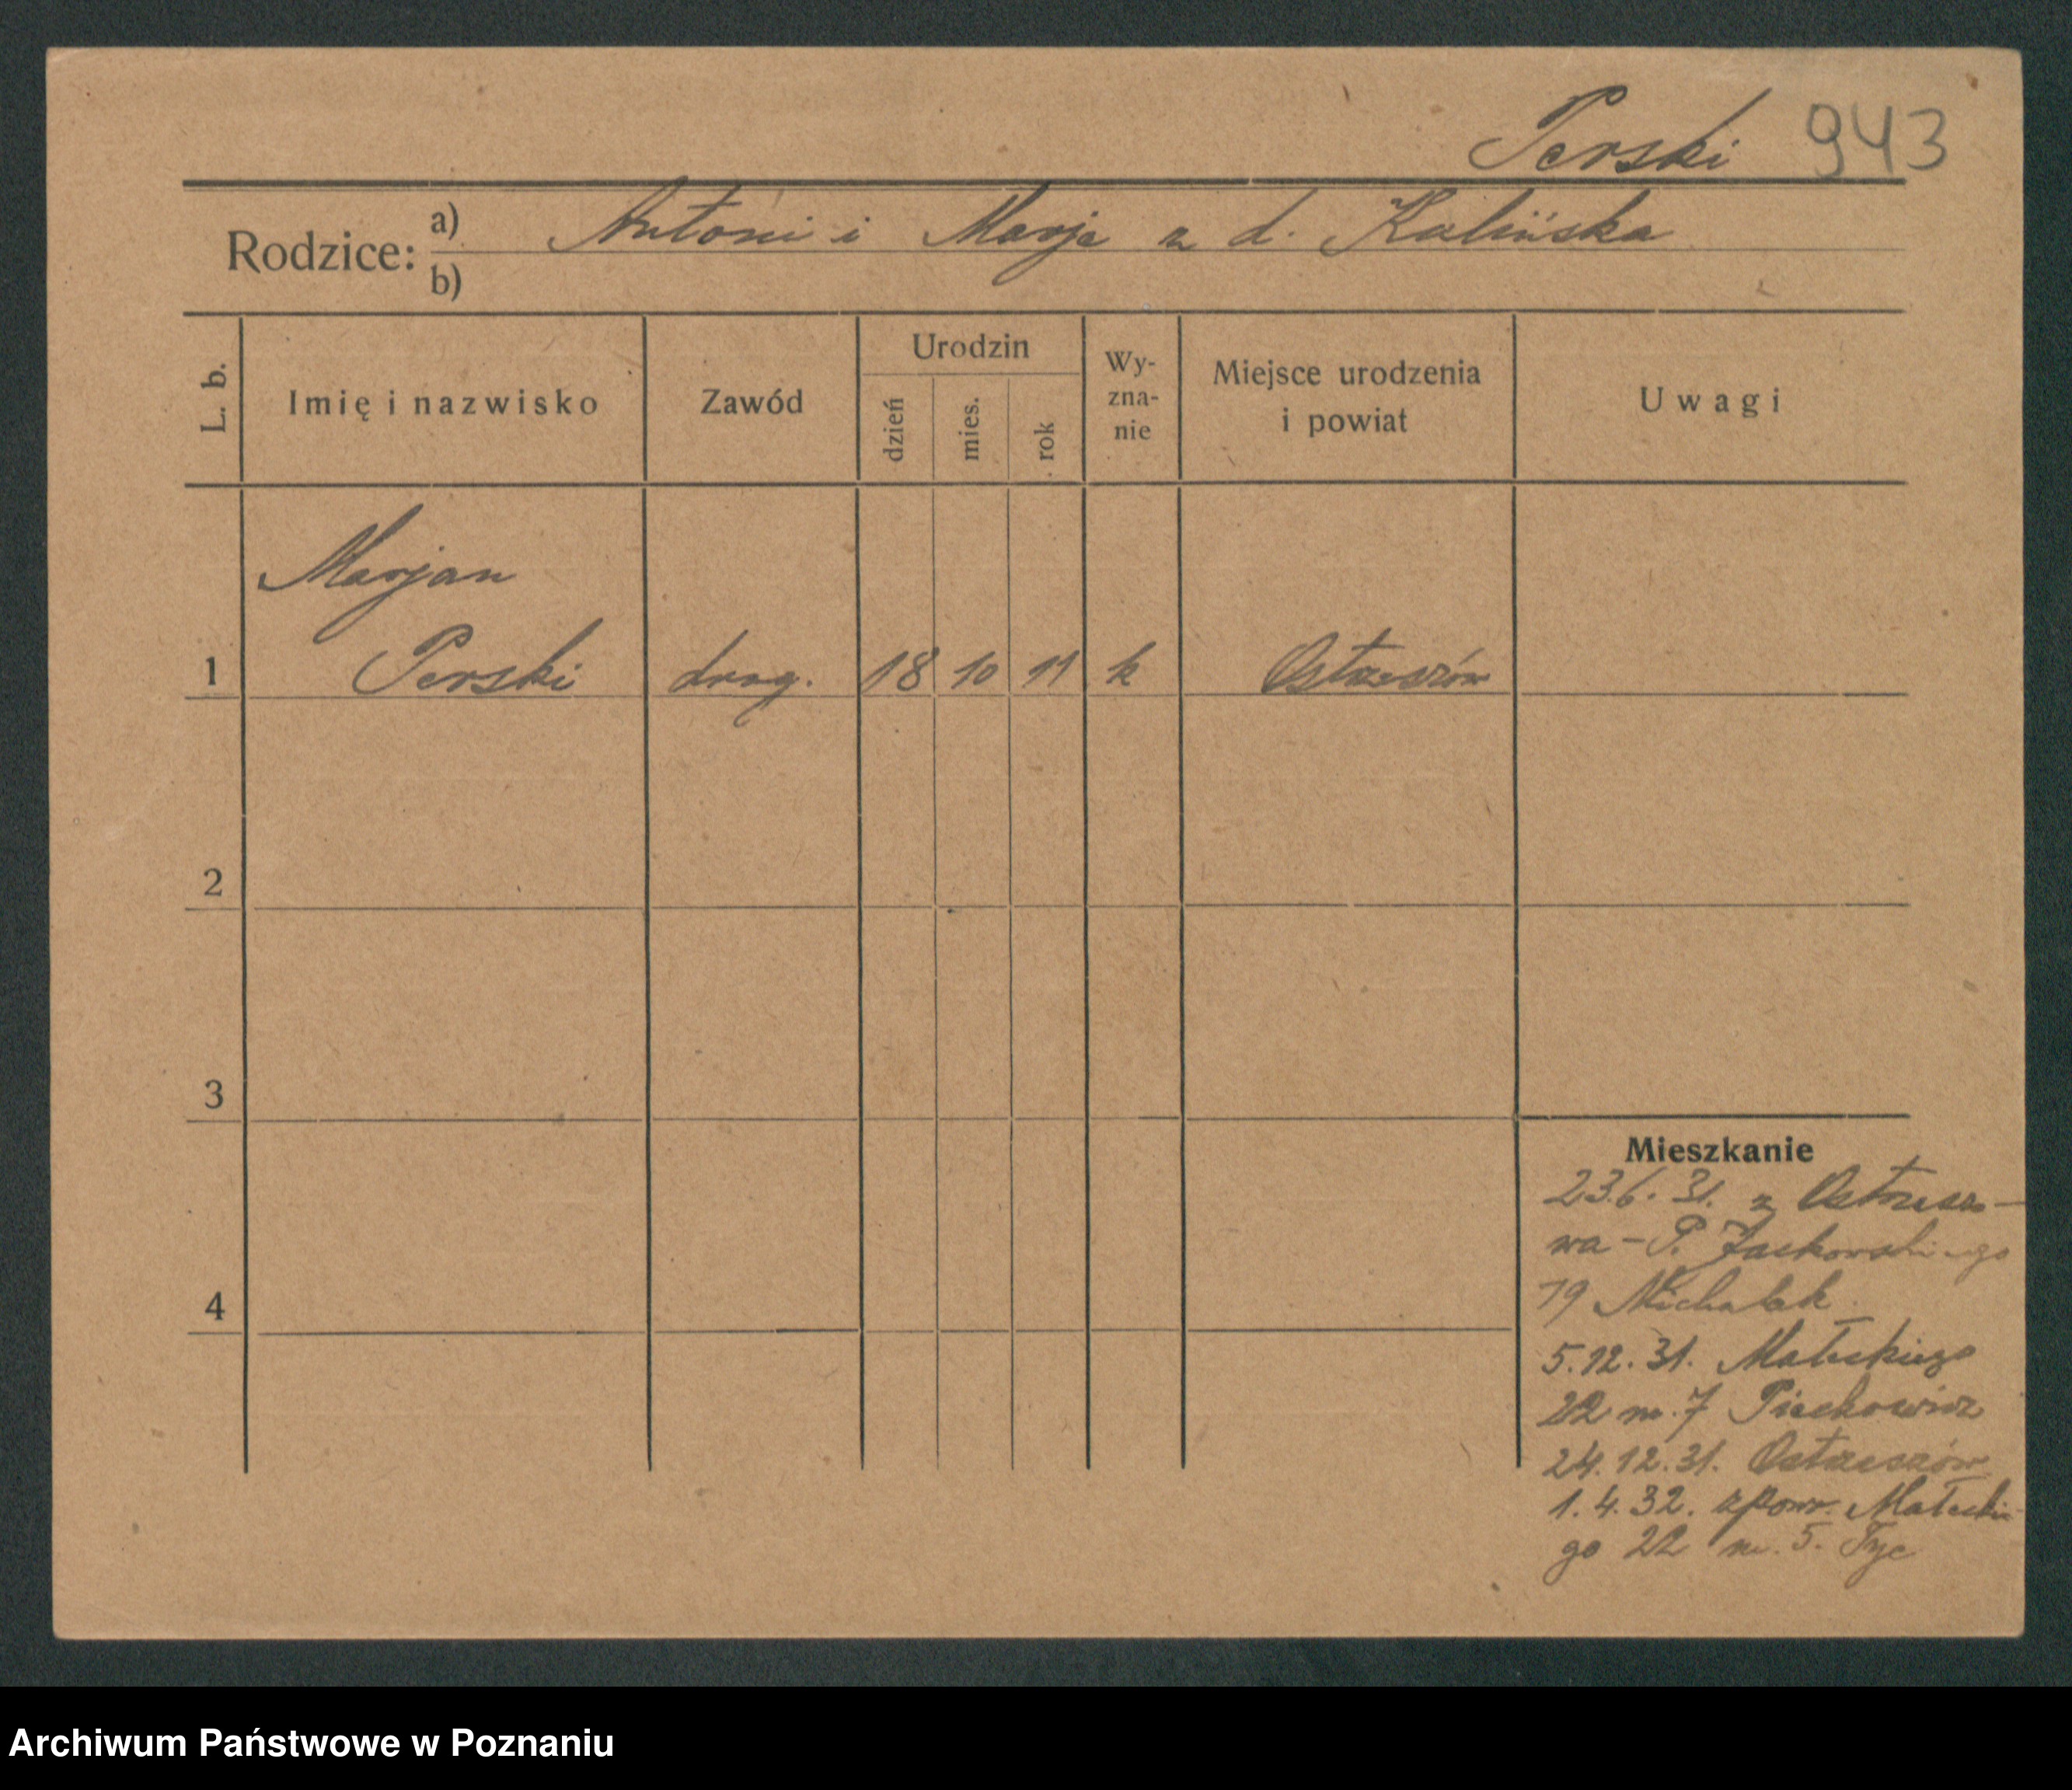 Perski 943
Rodzice: a) Antoni i Marja z d. Kalińska
b)
L. b. Imię i nazwisko Zawód Urodzin dzień mies. rok Wy-zna-nie Miejsce urodzenia i powiat Uwagi
Marjan
1 Perski drog. 18 10 11 k Ostrzeszów
2
3
4
Mieszkanie
23.6.31. z Ostrzeszo-
wa - P. Jackowskiego
19 Michalak
5.12.31. Małeckiego
22 m. 7 Piechowicz
24.12.31. Ostrzeszów
1.4.32. zpowr. Małecki-
go 22 m. 5. Tyc
Archiwum Państwowe w Poznaniu